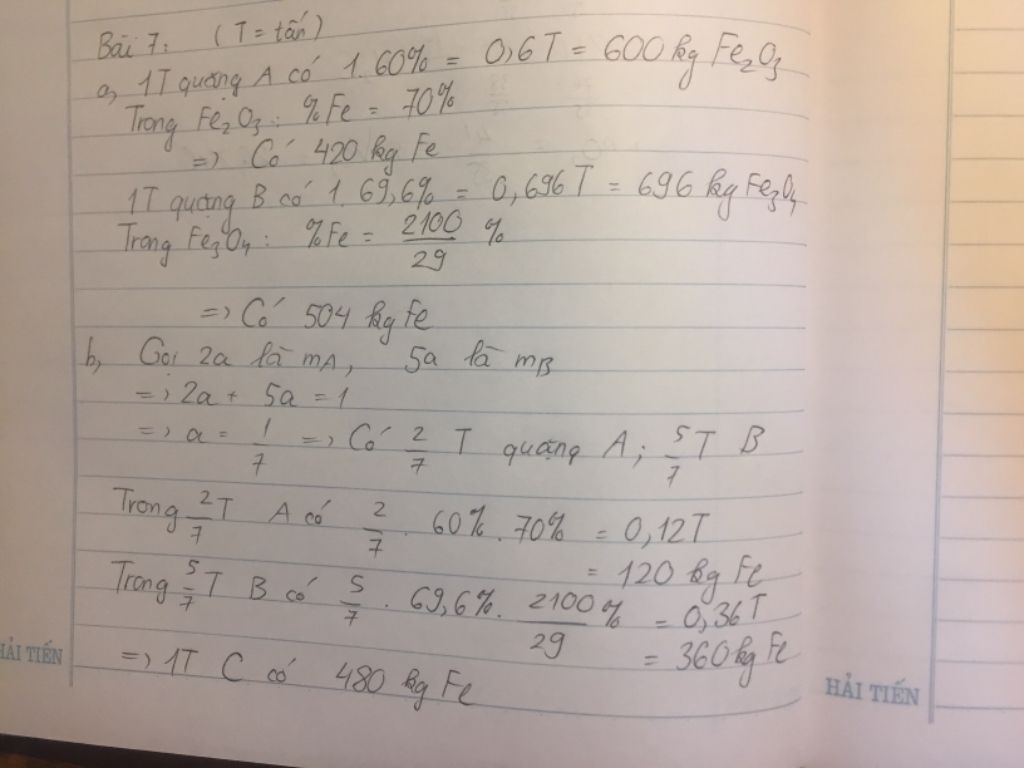 Bài 7: (T = tấn)
a, 1T quặng A có 1.60% = 0,6T = 600 kg Fe2O3
Trong Fe2O3: %Fe = 70%
=> Có 420 kg Fe
1T quặng B có 1.69,6% = 0,696T = 696 kg Fe3O4
Trong Fe3O4: %Fe = 2100/29 %
=> Có 504 kg Fe
b, Gọi 2a là mA, 5a là mB
=> 2a + 5a = 1
=> a = 1/7 => Có 2/7 T quặng A; 5/7 T B
Trong 2/7 T A có 2/7 . 60% . 70% = 0,12T
= 120 kg Fe
Trong 5/7 T B có 5/7 . 69,6% . 2100/29 % = 0,36T
= 360 kg Fe
=> 1T C có 480 kg Fe
HẢI TIẾN
HẢI TIẾN